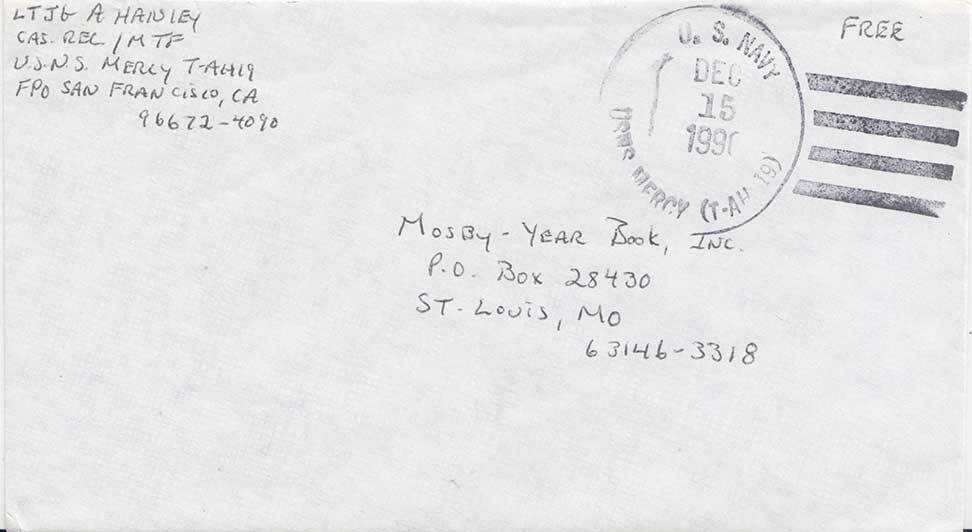 LTJG A HANLEY
CAS. REC. / MTF
U.S.N.S. MERCY T-AH19
FPO SAN FRANCISCO, CA
96672-4090
U. S. NAVY
DEC
15
1990
USNS MERCY (T-AH 19)
FREE
MOSBY-YEAR BOOK, INC.
P.O. BOX 28430
ST. LOUIS, MO
63146-3318